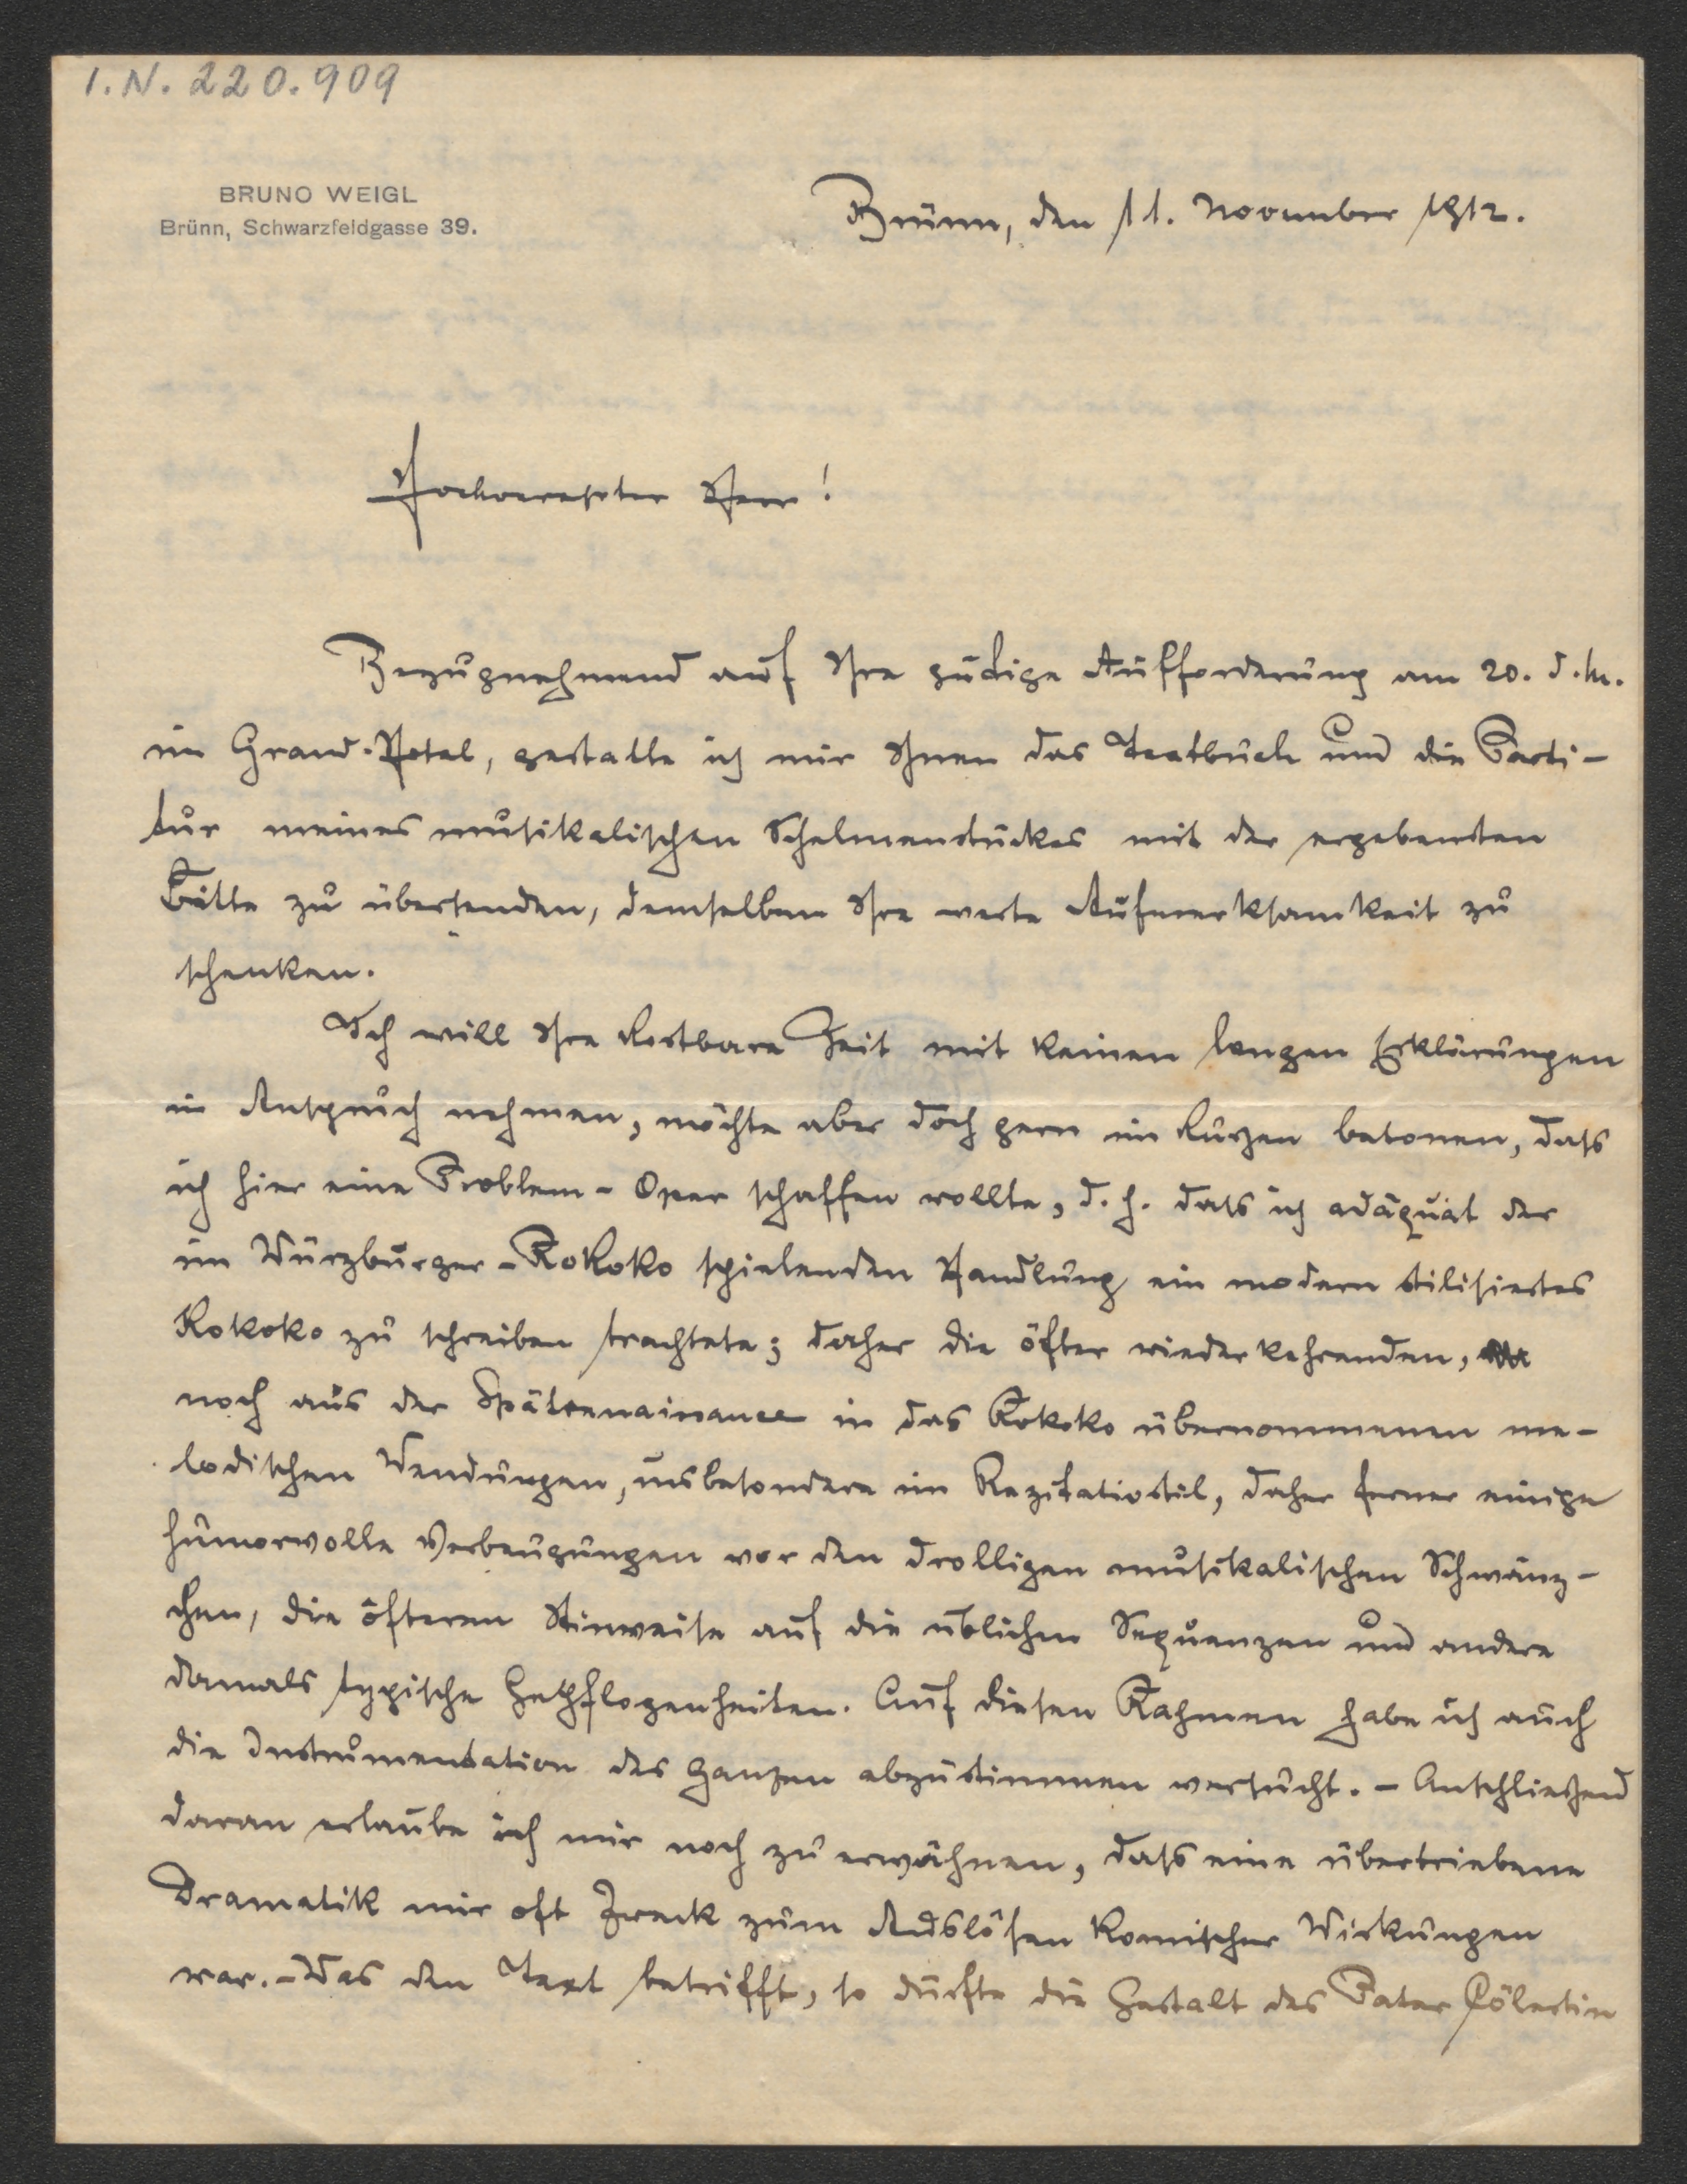 I.N. 220.909
BRUNO WEIGL
Brünn, Schwarzfeldgasse 39.
Brünn, den 11. November 1912.
Hochverehrter Herr!
Bezugnehmend auf Ihre gütige Aufforderung am 20. d. M.
im Grand-Hotel, gestatte ich mir Ihnen das Textbuch und die Parti-
tur meines musikalischen Schelmenstückes mit der ergebensten
Bitte zu übersenden, demselben Ihre werte Aufmerksamkeit zu
schenken.
Ich will Ihre kostbare Zeit mit keinen langen Erklärungen
in Anspruch nehmen, möchte aber doch gern im kurzen betonen, dass
ich hier eine Problem-Oper schaffen wollte, d. h. dass ich adäquat der
im Würzburger-Rokoko spielenden Handlung ein modern stilisiertes
Rokoko zu schreiben trachtete; daher die öfter wiederkehrenden,
noch aus der Spätrenaissance in das Rokoko übernommenen me-
lodischen Wendungen, insbesondere im Rezitativstil, daher ferner einige
humorvolle Verbeugungen vor den drolligen musikalischen Schwänz-
chen, die öfteren Hinweise auf die üblichen Sequenzen und andere
damals typische Gepflogenheiten. Auf diesen Rahmen habe ich auch
die Instrumentation des Ganzen abzustimmen versucht. - Anschließend
daran erlaube ich mir noch zu erwähnen, dass eine übertriebene
Dramatik mir oft Zweck zum Auslösen komischer Wirkungen
war. - Was den Text betrifft, so dürfte die Gestalt des Pater Cölestin